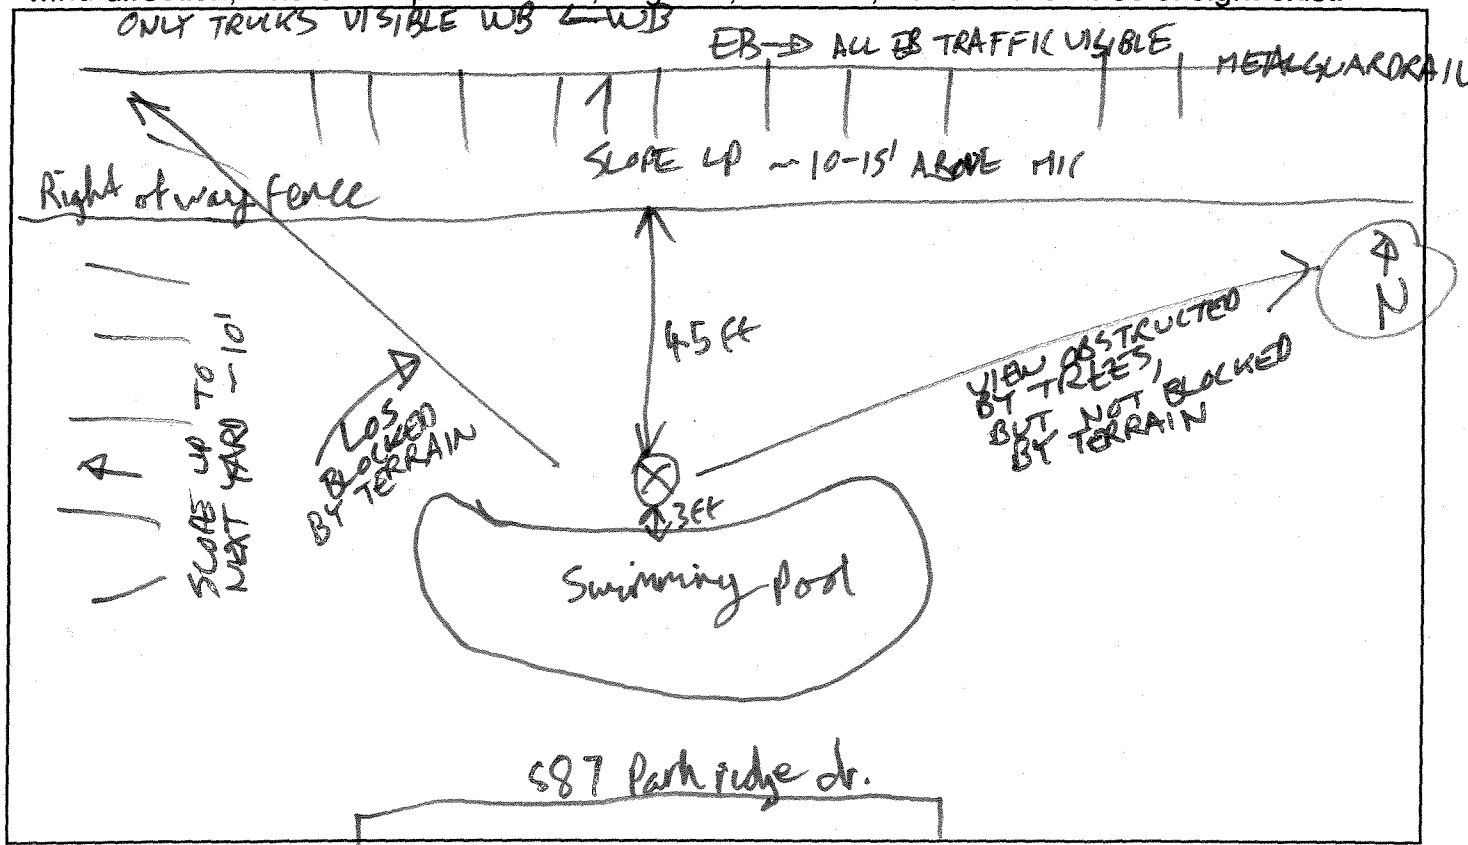 ONLY TRUCKS VISIBLE WB ← WB
EB → ALL EB TRAFFIC VISIBLE
METAL GUARDRAIL
SLOPE UP ~10-15' ABOVE MIC
Right of way fence
N
45 ft
VIEW OBSTRUCTED
BY TREES,
BUT NOT BLOCKED
BY TERRAIN
LOS
BLOCKED
BY TERRAIN
SLOPES UP TO
NEXT YARD ~10'
3ft
Swimming Pool
587 Park ridge dr.